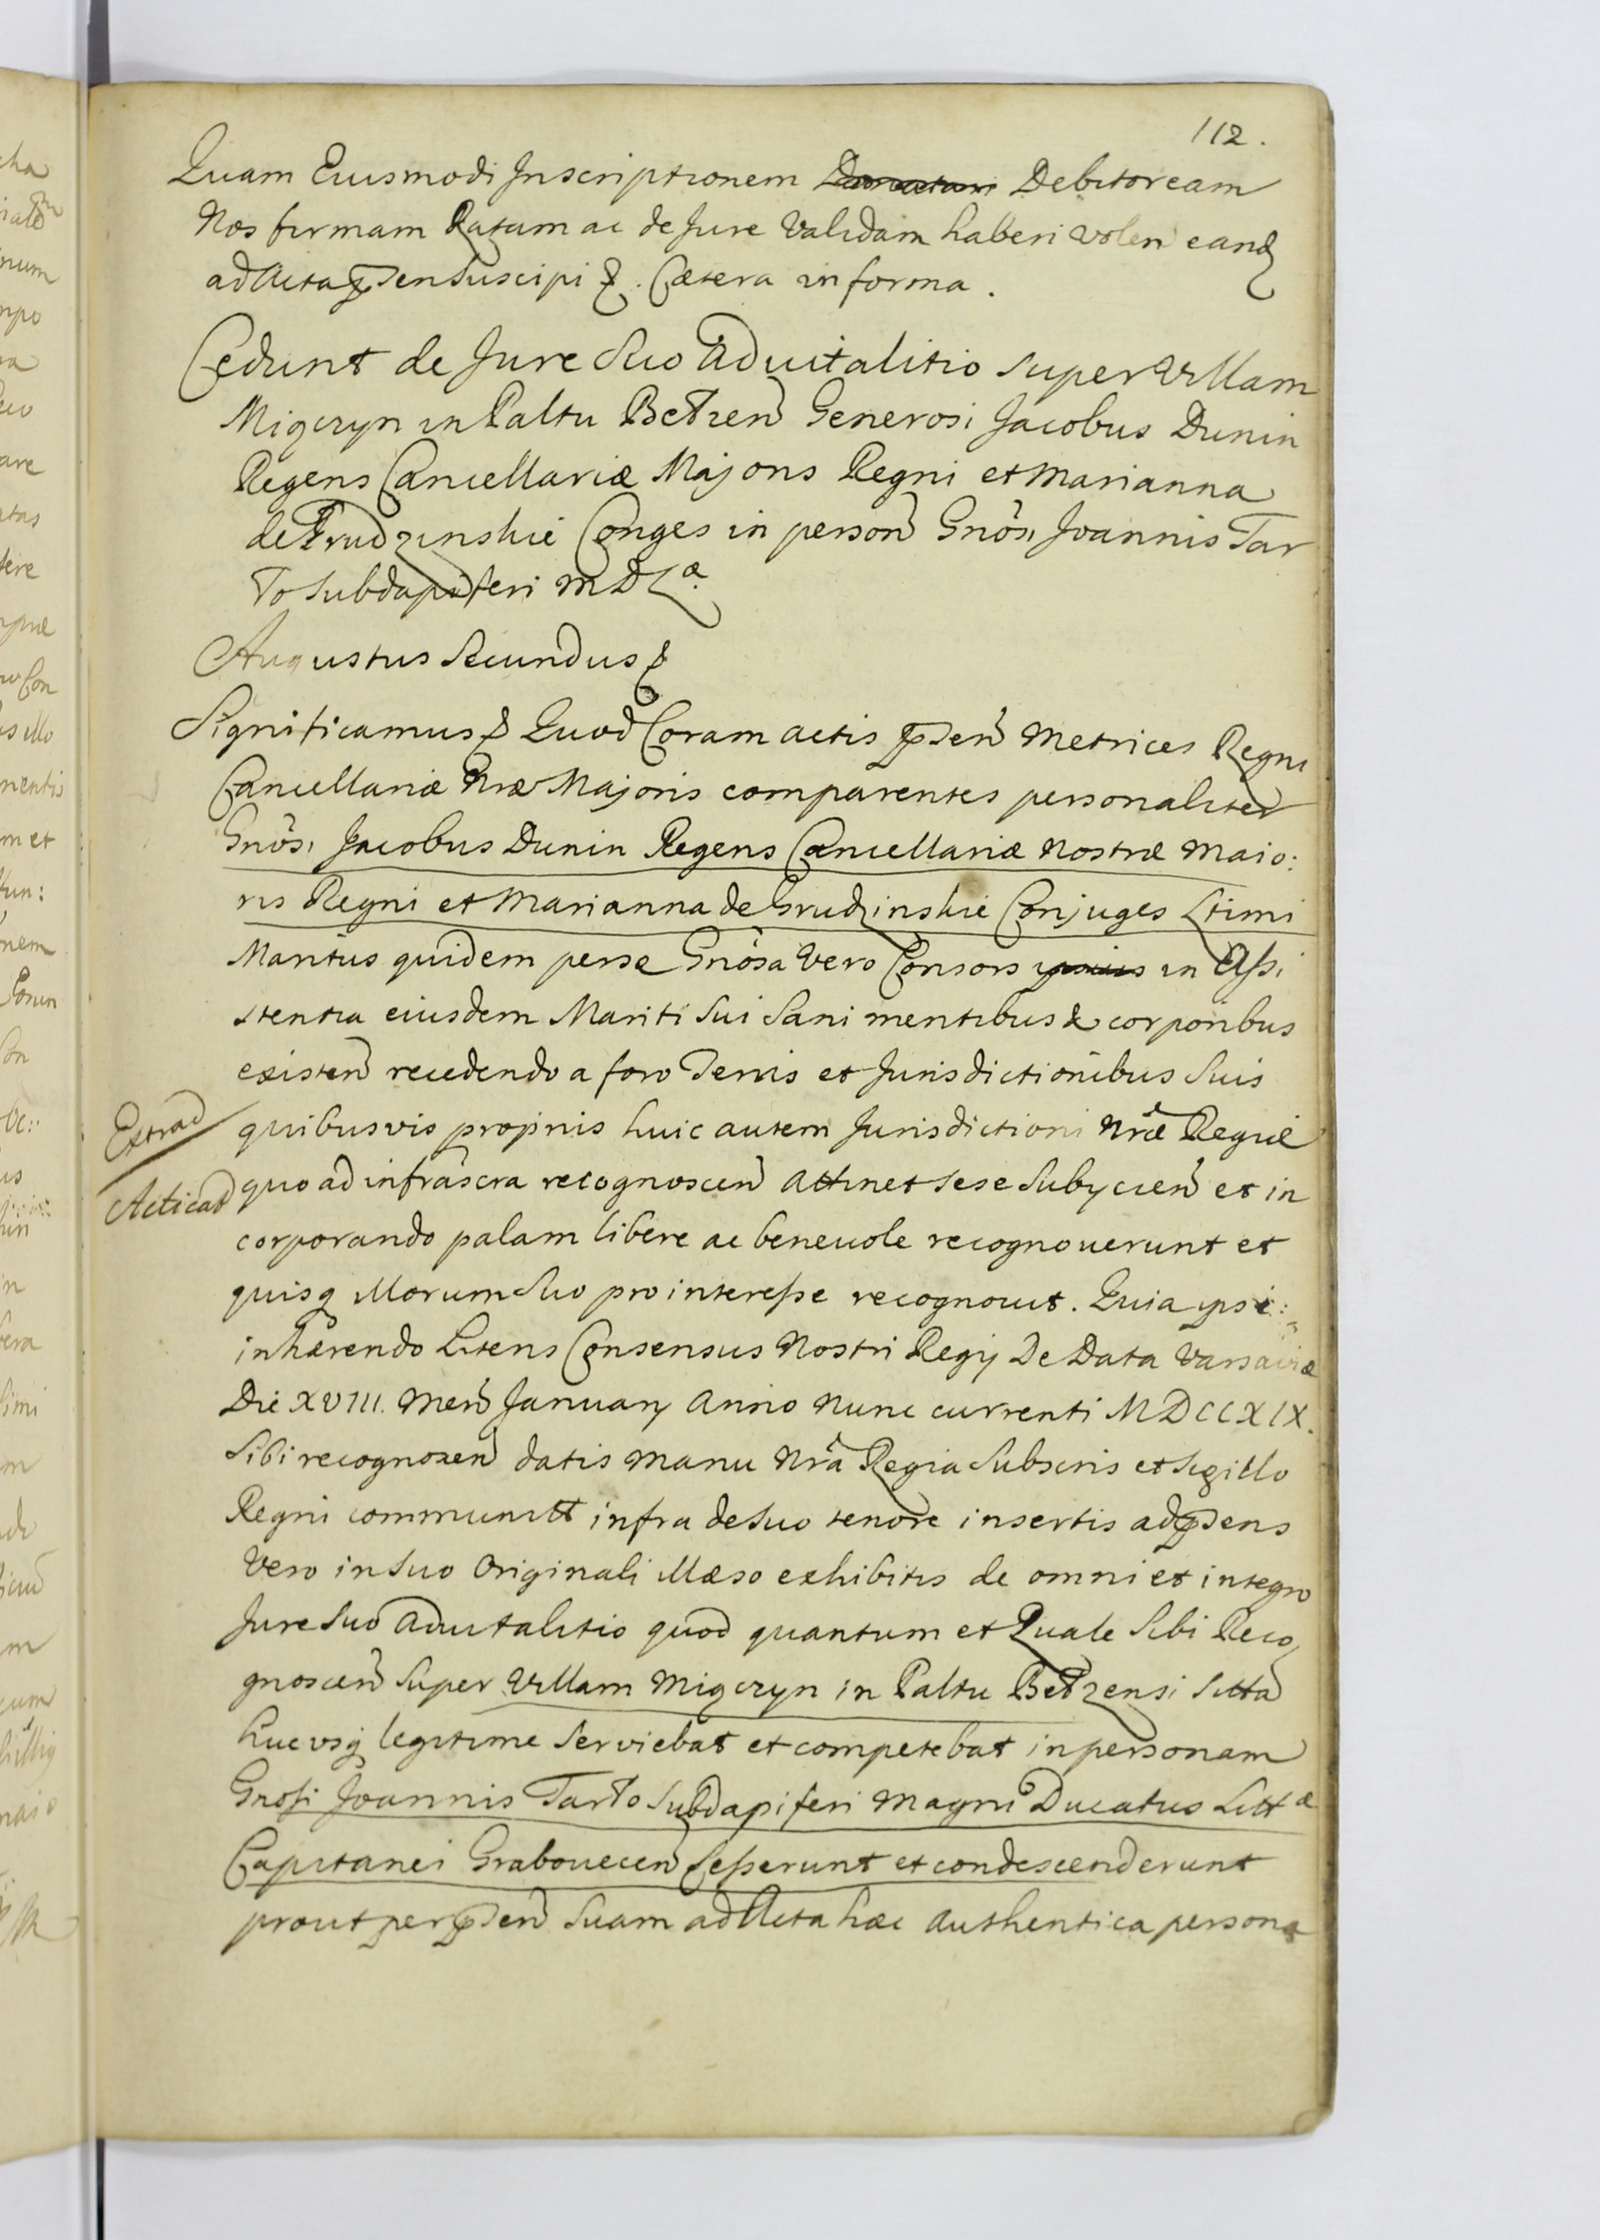 112.
Quam Eiusmodi Inscriptionem Debitoream
Nos firmam Ratam ac de Jure Validam haberi volen eandꝫ
ad Acta pñsen Suscipi &. Cætera in forma.
Cedunt de Jure Suo Aduitalitio super Villam
Migczyn in Paltu Bełzeñ Generosi Jacobus Dunin
Regens Cancellariæ Majoris Regni et Marianna
de Grudzinskie Conges in persoñ Gnôsi Joannis Tar
ło Subdapiferi M D Lᵃ.
Augustus Secundus &
Significamus & Quod Coram actis pñseñ Metrices Regni
Cancellariæ Nræ Majoris comparentes personaliter
Gnôsi Jacobus Dunin Regens Cancellariæ Nostræ Maio:
ris Regni et Marianna de Grudzinskie Conjuges Ltimi
Maritus quidem per se Gnôsa Vero Consors in Assi
stentia eiusdem Mariti Sui Sani mentibus & corporibus
existeñ recedendo a foro Terris et Jurisdictionibus Suis
Extrad
quibusvis proprijs huic autem Jurisdictioni Nræ Regiæ
Acticad
quo ad infrascra recognosceñ Attinet sese Subijcieñ et in
corporando palam libere ac beneuole recognouerunt et
quisqꝫ illorum Suo pro interesse recognouit. Quia ipsi:
inhærendo Literis Consensus Nostri Regij De Data Varsaviæ
Die XVIII. Meñ Januarij Anno Nunc currenti MDCCXIX.
Sibi recognosceñ datis manu Nra Regia Subscris et Sigillo
Regni communitt infra de Suo tenore insertis ad pñsens
Vero in Suo Originali Illæso exhibitis de omni et integro
Jure Suo Aduitalitio quod quantum et Quale Sibi Reco
gnosceñ Super Villam Migczyn in Paltu Bełzensi Sitta
hucusqꝫ legitime Serviebat et competebat in personam
Gnosi Joannis Tarło Subdapiferi Magni Ducatus Littᵃ
Capitanei Grabovieceñ Cesserunt et condescenderunt
prout per pñseñ Suam ad Acta hæc Authentica persona